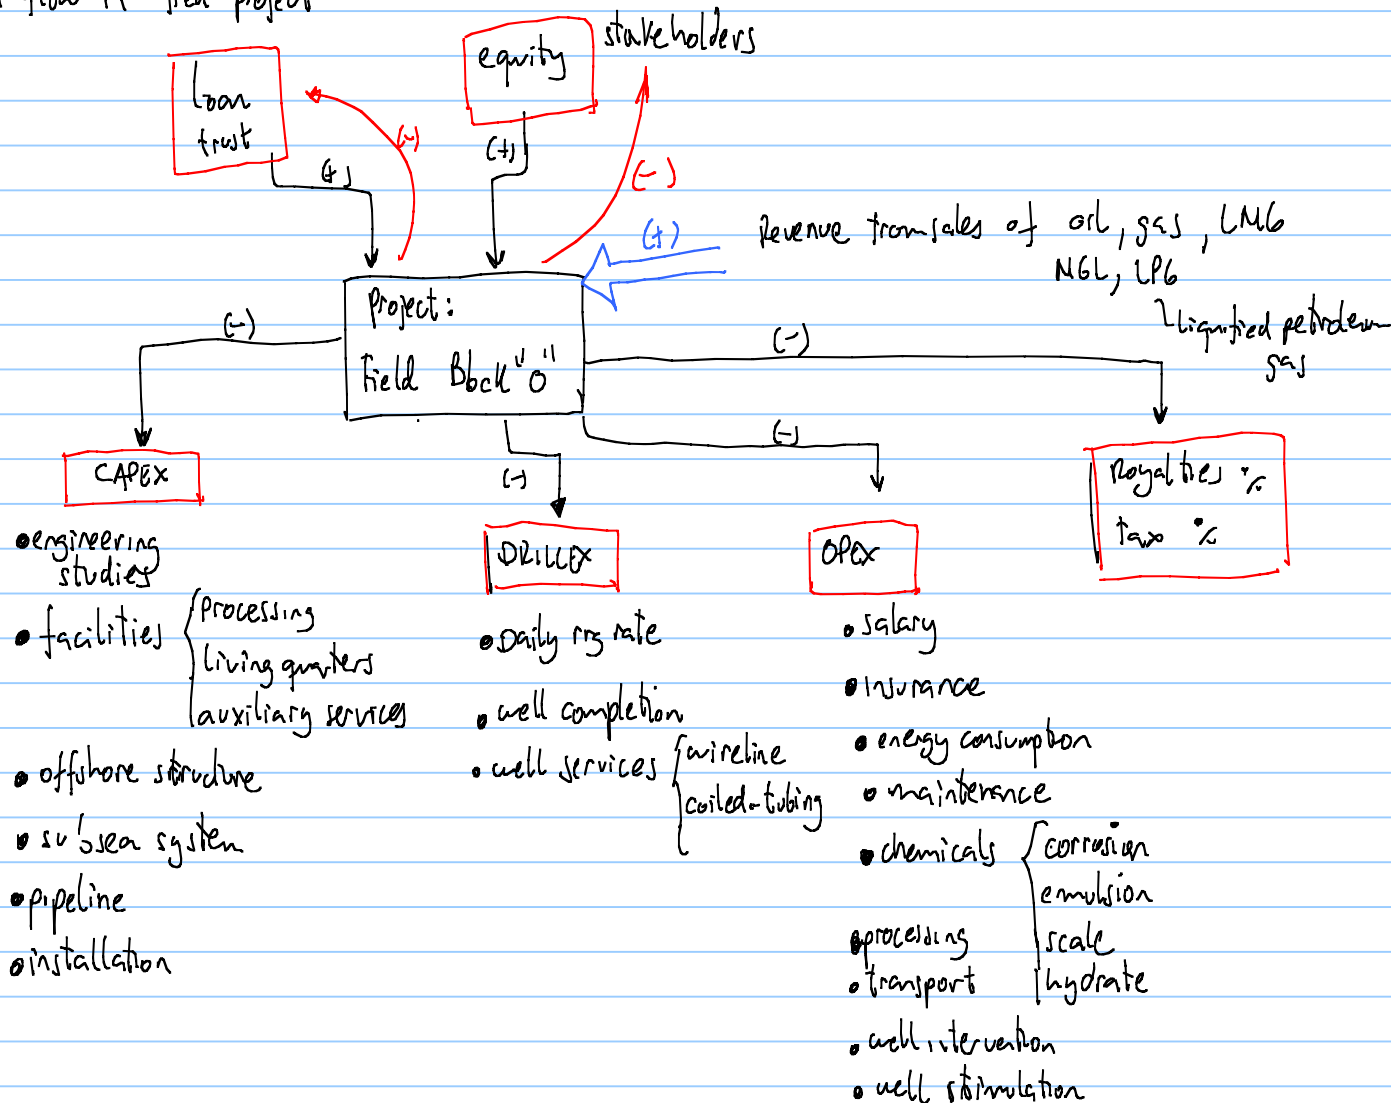 project
stakeholders
equity
loan
trust
(-)
(+)
(+)
(-)
(+)
Revenue from sales of oil, gas, LNG
NGL, LPG
liquified petroleum
gas
Project:
Field Block "O"
(-)
(-)
(-)
(-)
CAPEX
Royalties %
tax %
DRILLEX
OPEX
• engineering
studies
• facilities
processing
living quarters
auxiliary services
• offshore structure
• subsea system
• pipeline
• installation
• Daily rig rate
• well completion
• well services
wireline
coiled-tubing
• salary
• insurance
• energy consumption
• maintenance
• chemicals
corrosion
emulsion
scale
hydrate
• processing
• transport
• well intervention
• well stimulation